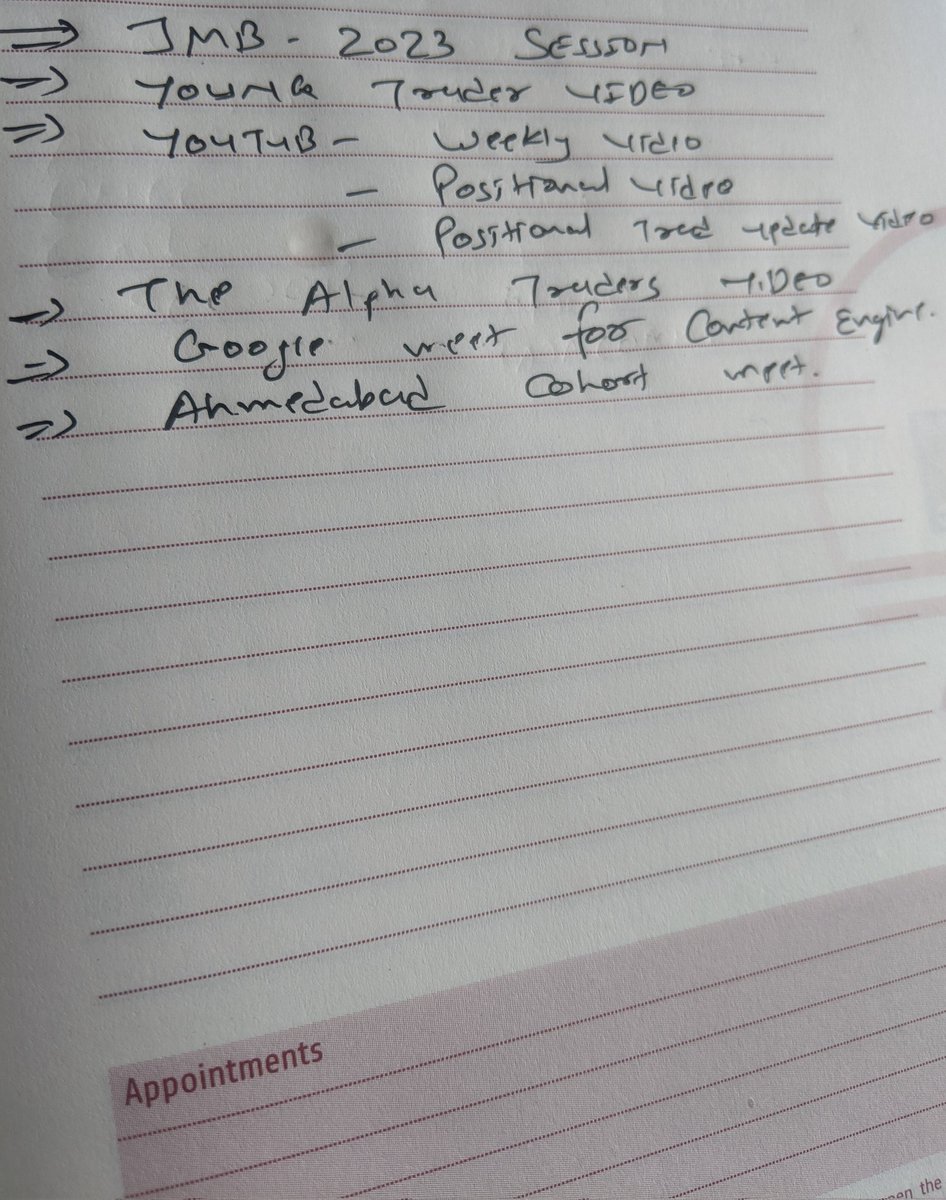 ⇒ JMB - 2023 SESSION
⇒ YOUNG Trader VIDEO
⇒ YOUTUB - Weekly Vidio
- Positional Video
- Positional Tred update Video
→ The Alpha Traders VIDEO
⇒ Google meet for Content Engine.
⇒ Ahmedabad Cohort meet.
Appointments
the